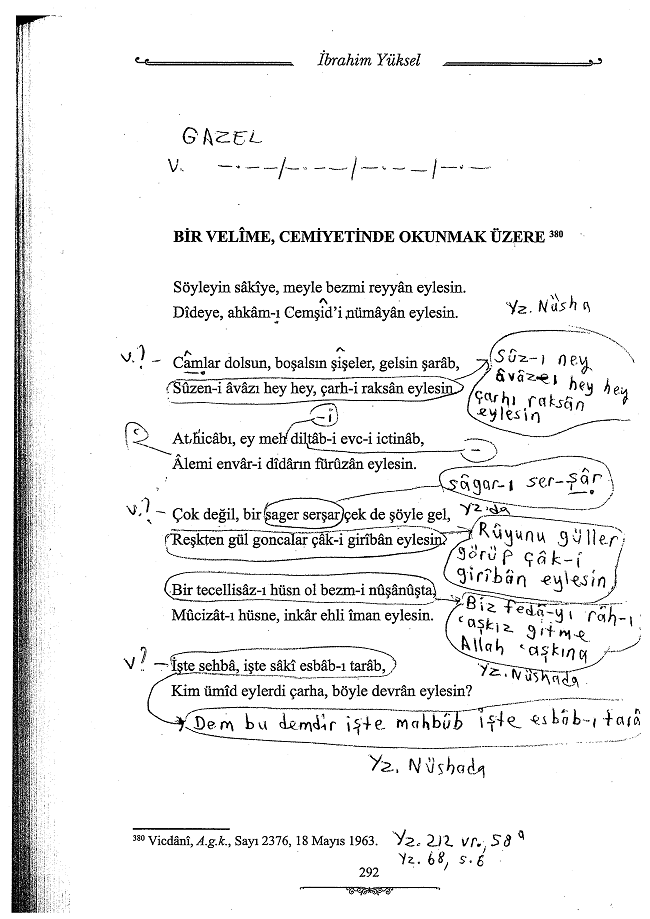 İbrahim Yüksel
GAZEL
V. —.——/—.——/—.——/—.—
BİR VELÎME, CEMİYETİNDE OKUNMAK ÜZERE 380
Söyleyin sâkîye, meyle bezmi reyyân eylesin.
Dîdeye, ahkâm-ı Cemşîd'i nümâyân eylesin.
Yz. Nüsha
V.? – Câmlar dolsun, boşalsın şîşeler, gelsin şarâb,
Sûzen-i âvâzı hey hey, çarh-i raksân eylesin
Sûz-ı ney
âvâzei hey hey
çarhı raksân
eylesin
-i
At hicâbı, ey meh diltâb-i evc-i ictinâb,
Âlemi envâr-i dîdârın fürûzân eylesin.
sâgar-ı ser-şâr
V.? – Çok değil, bir sager serşar çek de şöyle gel,
Reşkten gül goncalar çâk-i girîbân eylesin.
Yz.da
Rûyunu güller
görüp çâk-i
girîbân eylesin
Bir tecellisâz-ı hüsn ol bezm-i nûşânûşta,
Mûcizât-ı hüsne, inkâr ehli îman eylesin.
Biz fedâ-yı râh-ı
'aşkız gitme
Allah 'aşkına
Yz. Nüshada
V? – İşte sehbâ, işte sâkî esbâb-ı tarâb,
Kim ümîd eylerdi çarha, böyle devrân eylesin?
Dem bu demdir işte mahbûb işte esbâb-ı tara
Yz. Nüshada
380 Vicdânî, A.g.k., Sayı 2376, 18 Mayıs 1963.
Yz. 212 vr., 58a
Yz. 68, s.6
292